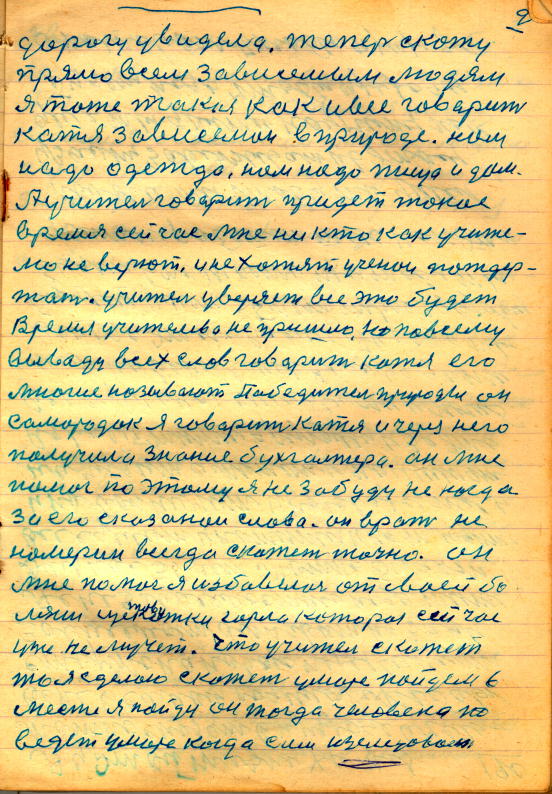 2
дорогу увидела. тепер скожу
прямо всем зависемым людям
я тоже такая как и вие говарит
катя зависемои в природе. нам
надо одежда, нам надо пища и дом.
А учител говарит придет токое
время сей час мне ни кто как учите-
лю не верют. и не хотят ученои поддер-
жат. учител уверяет все это будет
Время учителева не пришло, но по всему
Вываду всех слов говарит катя его
многие называют Победител природы он
самородок я говарит катя и через него
получила знание бухгалтера. он мне
помог по этому я не забуду не когда
за его сказанои слова. он врат не
номерин всегда скажет точно. он
мне помог я избавелас от своей бо
лязни щекотки горла которая сей час
уже не мучет. Что учител скажет
то я сделою скажет уморе пойдем в
месте я пойду он тогда человека по
ведет уморе когда сам